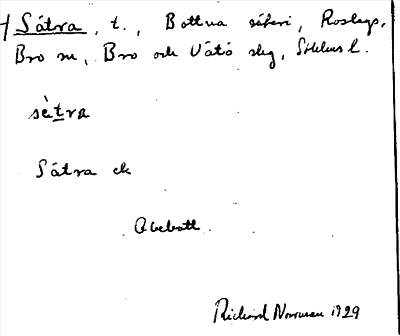 † Sätra, t., Bottna säteri, Roslags-
Bro sn, Bro och Vätö skg, Sthlms l.
sètra
Sätra ek
Richard Norrman 1929